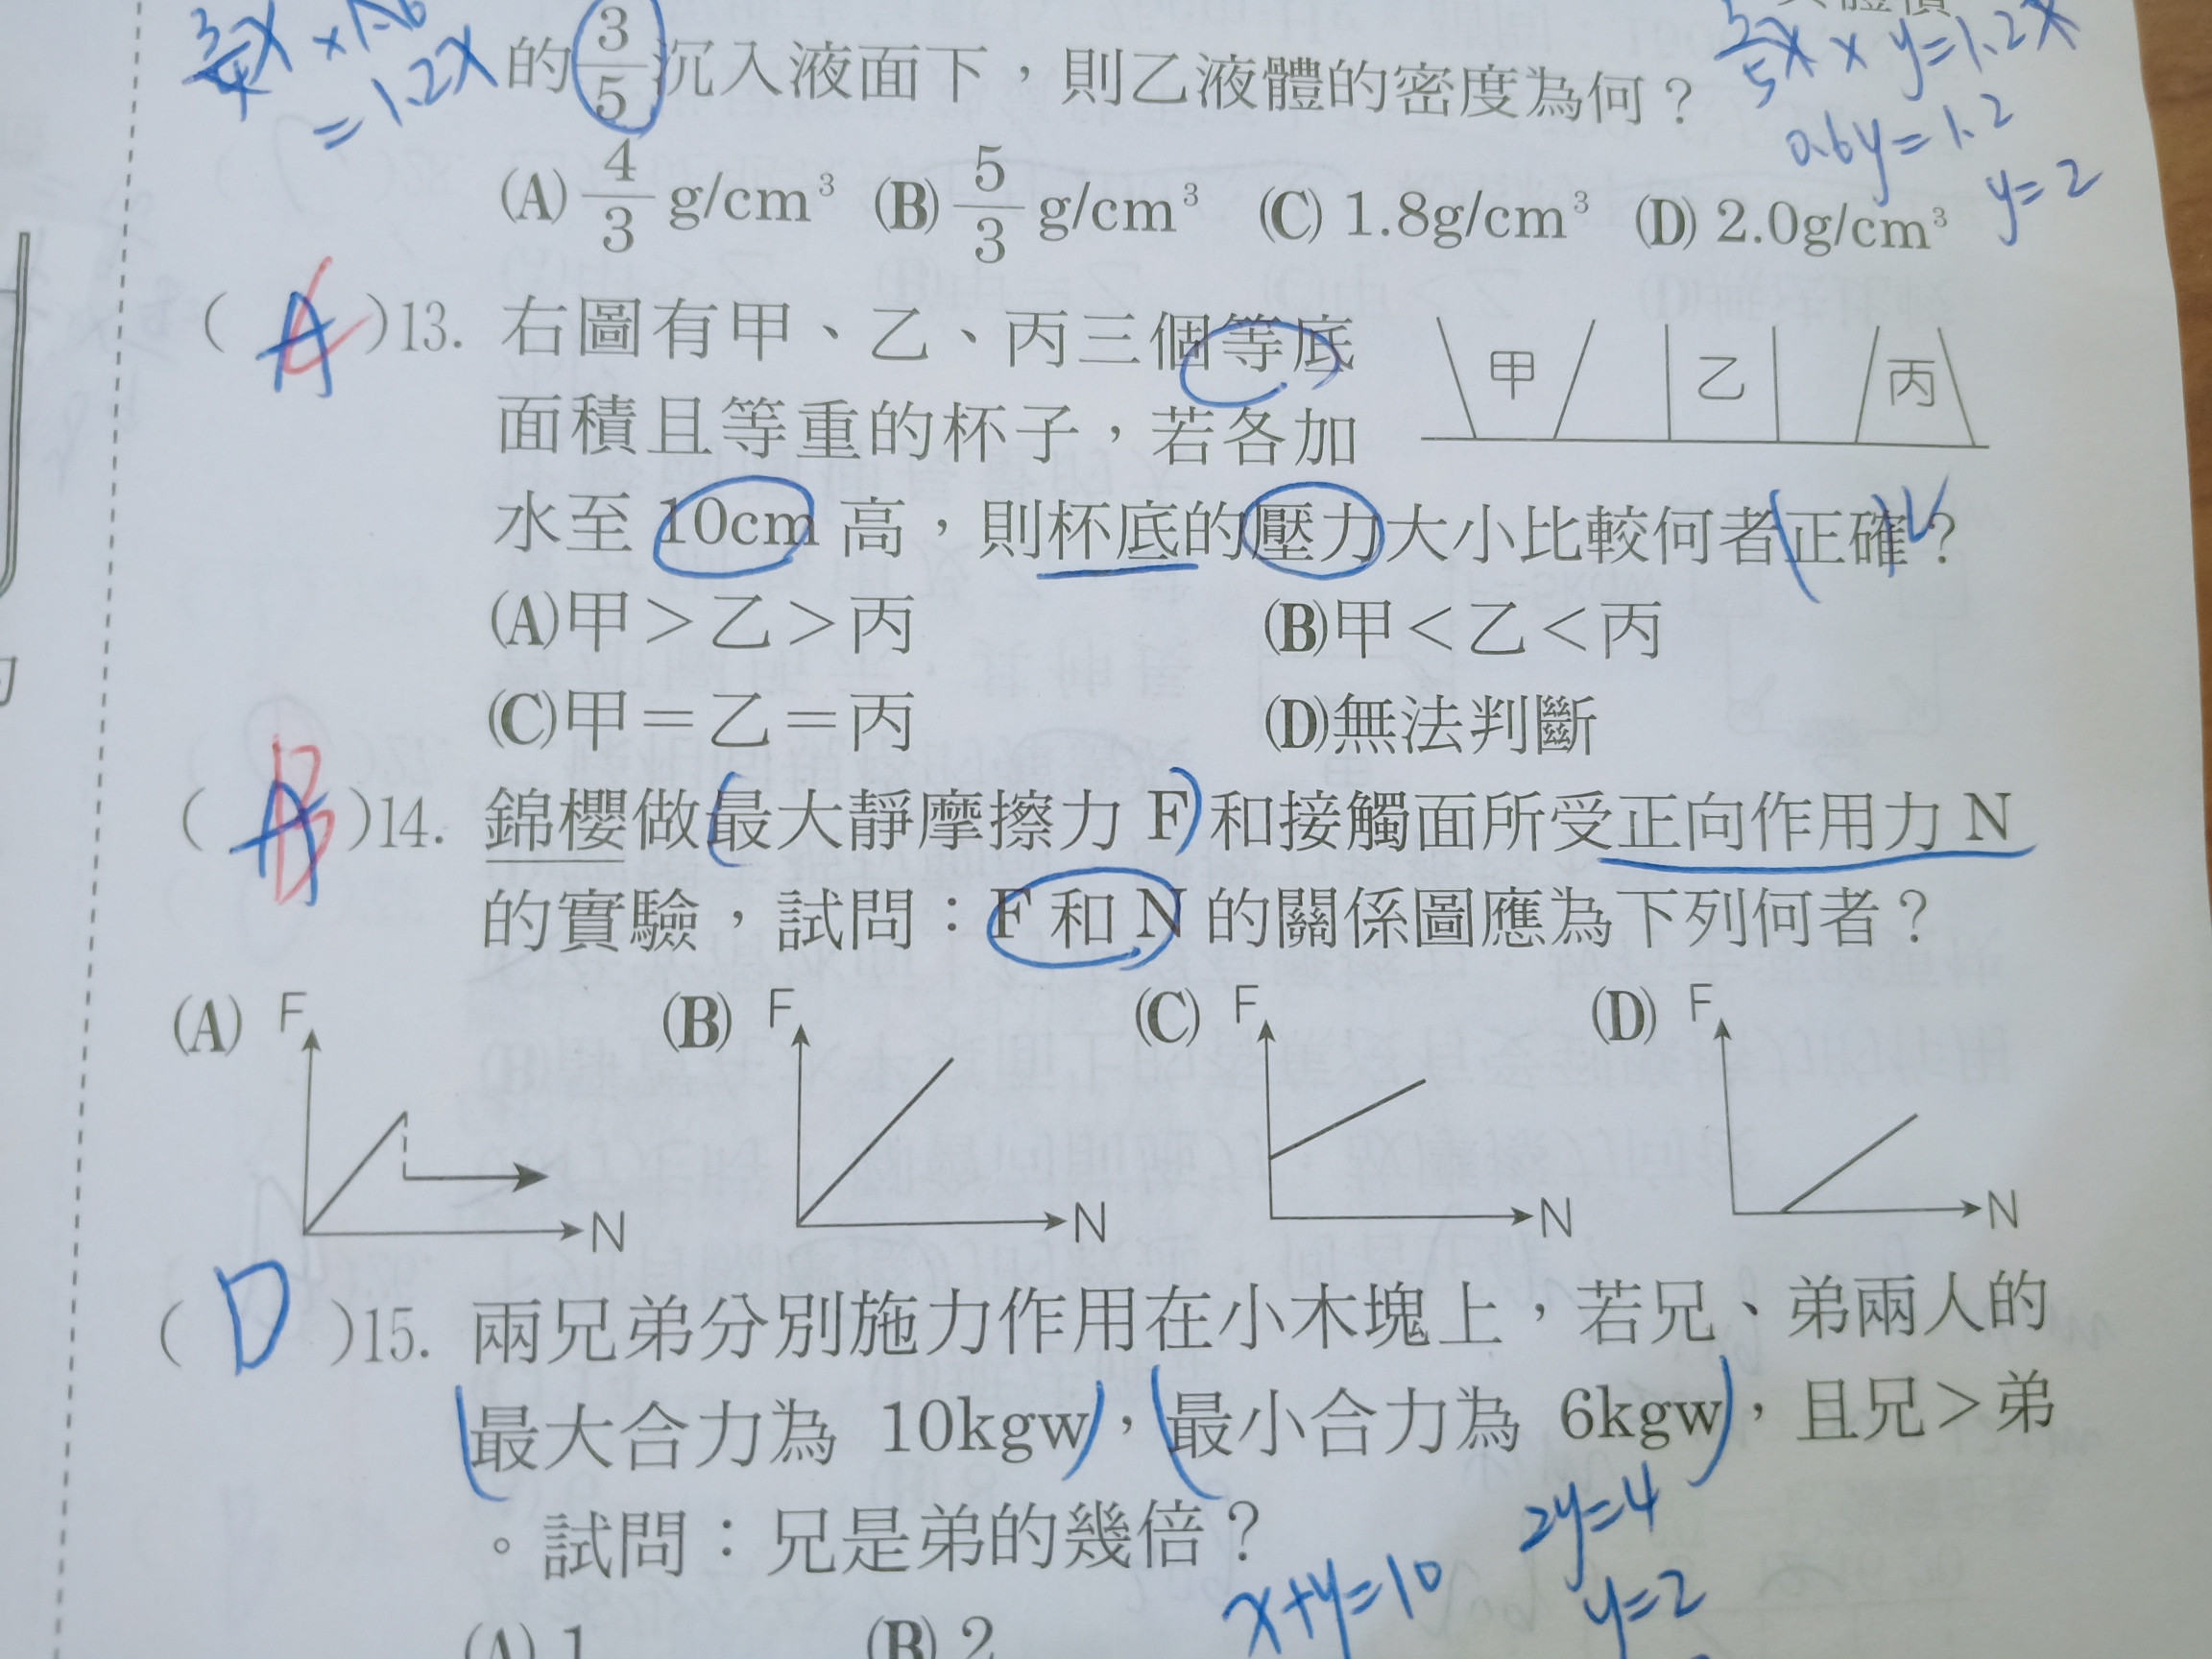 3/4 x × 1.6
= 1.2x
3/5 x × y = 1.2x
0.6y = 1.2
y = 2
的 3/5 沉入液面下，則乙液體的密度為何？
(A) 4/3 g/cm³ (B) 5/3 g/cm³ (C) 1.8g/cm³ (D) 2.0g/cm³
( A C )13. 右圖有甲、乙、丙三個等底
甲 乙 丙
面積且等重的杯子，若各加
水至 10cm 高，則杯底的壓力大小比較何者正確？
(A)甲＞乙＞丙 (B)甲＜乙＜丙
(C)甲＝乙＝丙 (D)無法判斷
( A B )14. 錦櫻做最大靜摩擦力 F 和接觸面所受正向作用力 N
的實驗，試問：F 和 N 的關係圖應為下列何者？
(A) F N (B) F N (C) F N (D) F N
( D )15. 兩兄弟分別施力作用在小木塊上，若兄、弟兩人的
最大合力為 10kgw，最小合力為 6kgw，且兄＞弟
。試問：兄是弟的幾倍？
2y=4
x+y=10 y=2
(A) 1 (B) 2